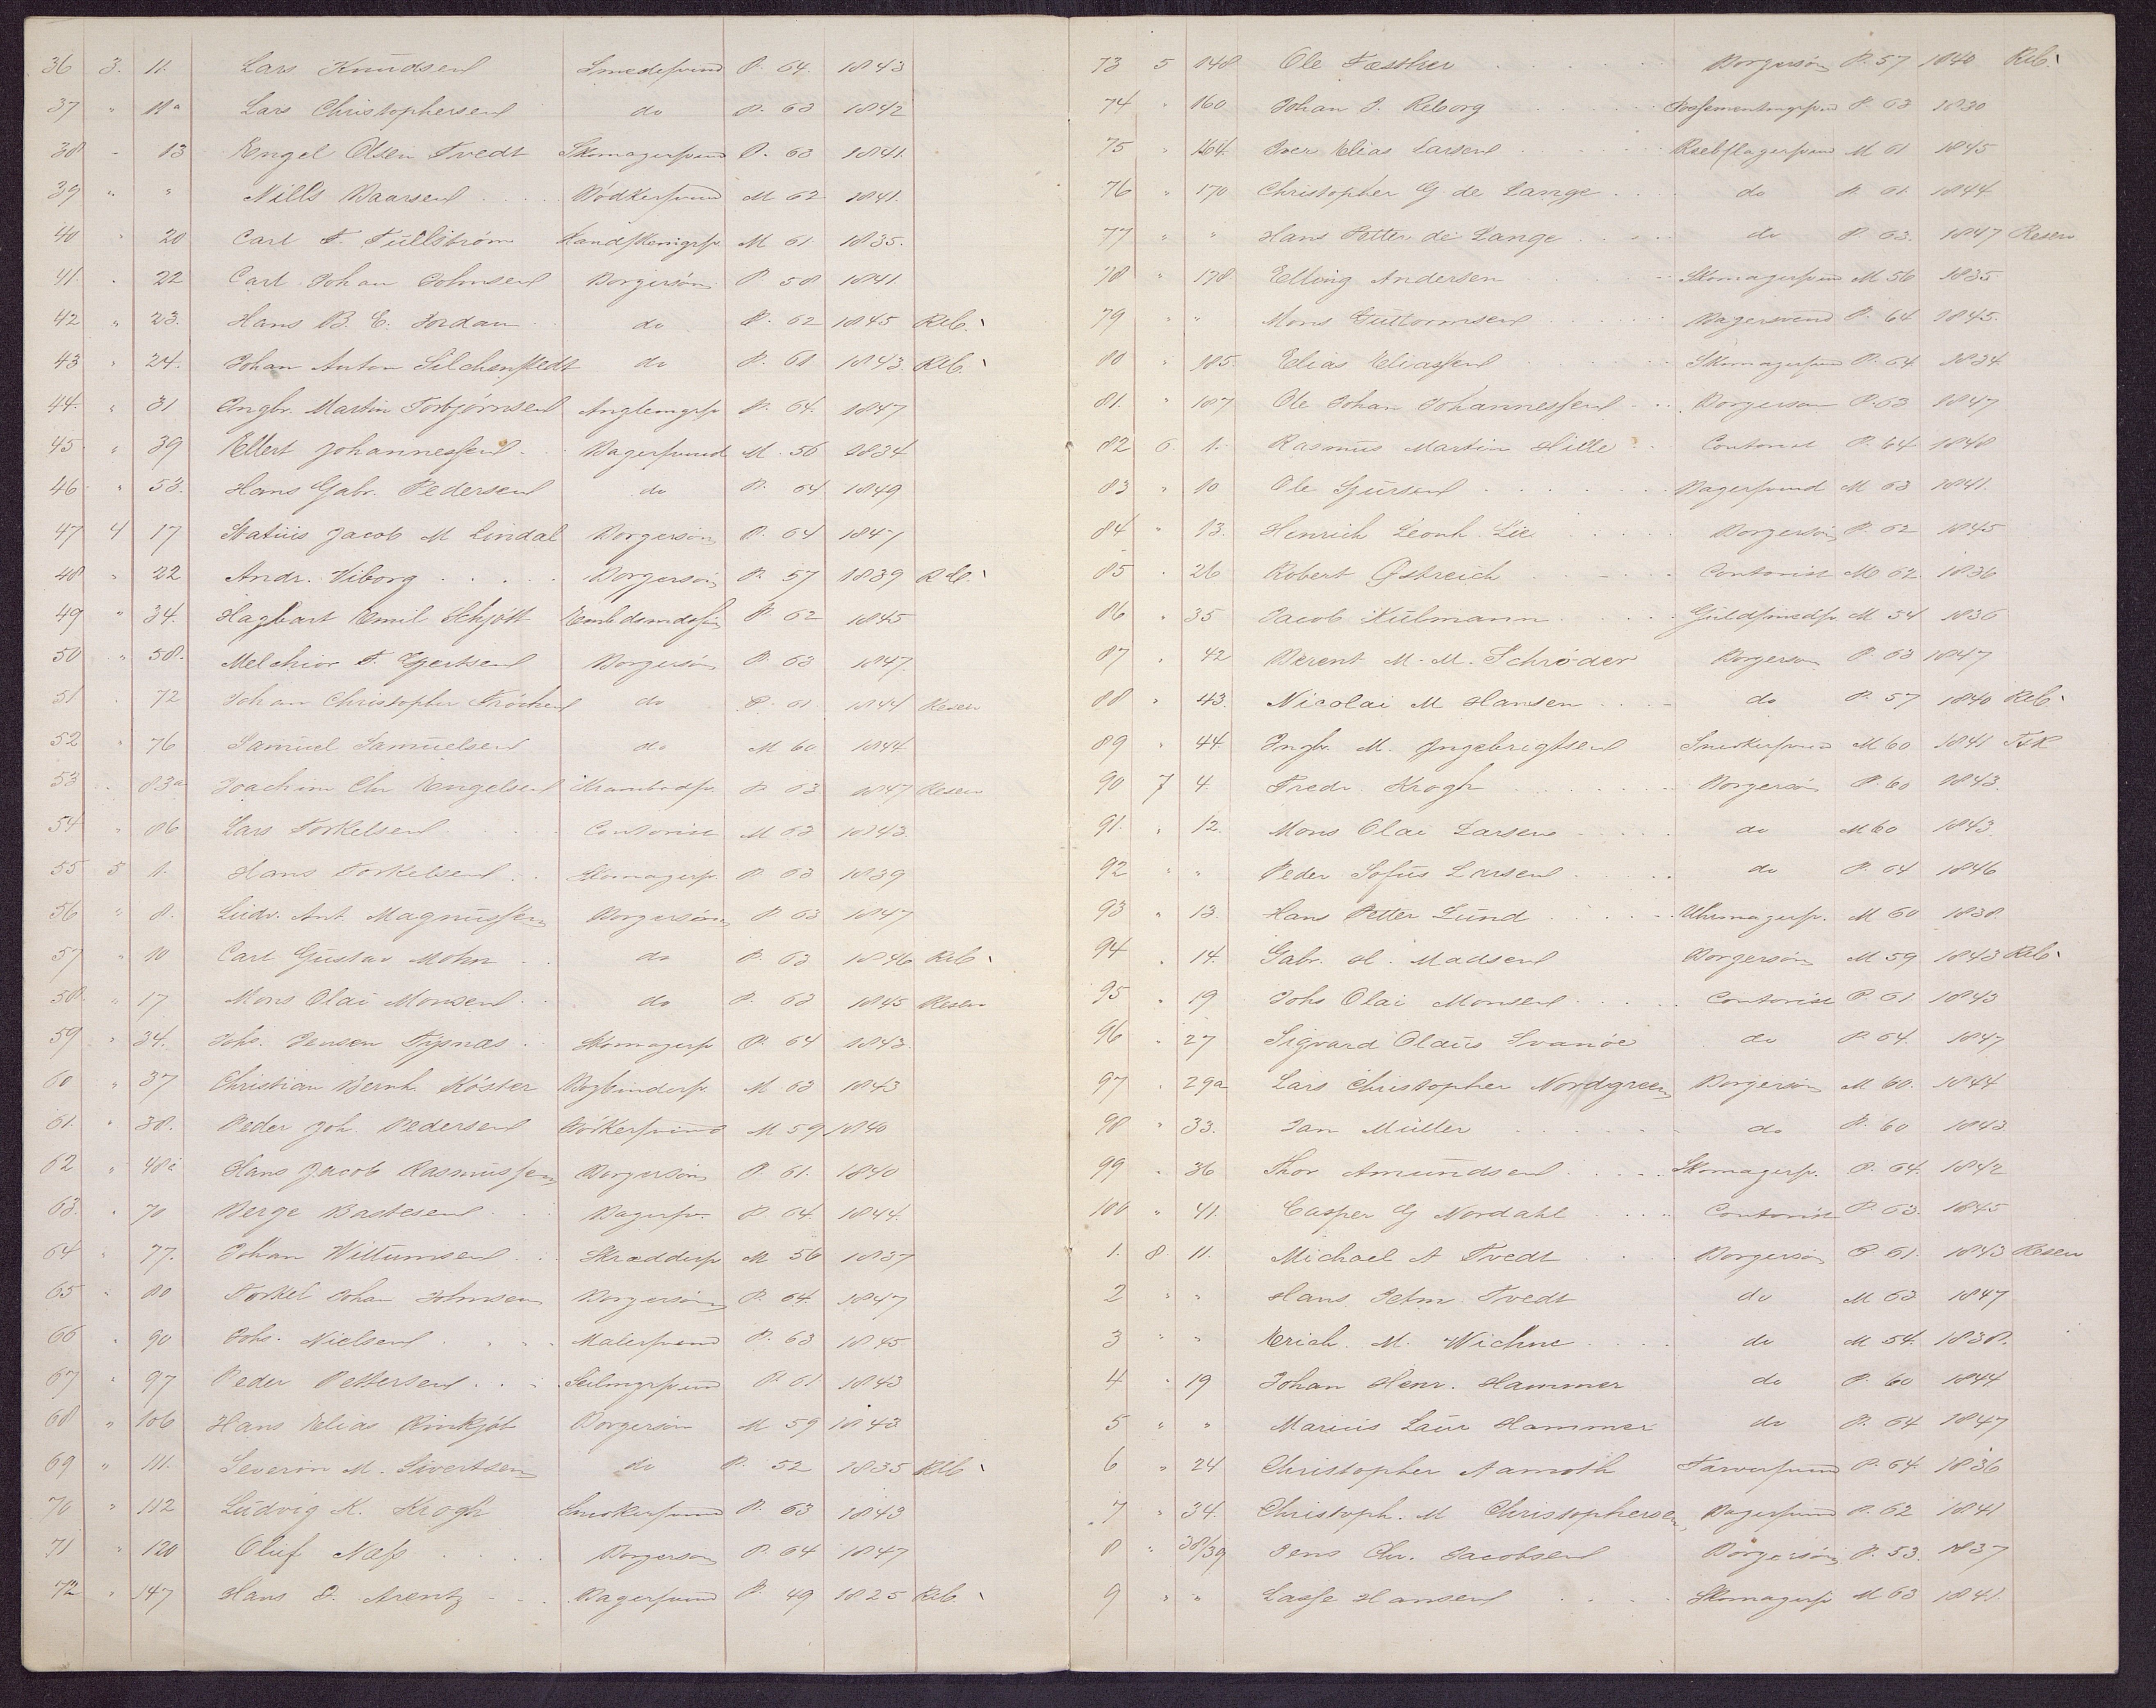 36 3. 11. Lars Knudsen Smedesvend P. 64. 1843
37 " 11a Lars Christophersen do P. 63 1842
38 - 13 Engel Olsen Tvedt Skomagersvend P. 63 1841.
39 " " Nills Baarsen Bödkersvend M 62 1841.
40 " 20 Carl F. Tullström M 61. 1835.
41. " 22 Carl Johan Johnsen Borgersön P. 58 1841.
42 " 23. Hans B. E. Jordan do P. 62 1845 Reb.
43 " 24. Johan Anton do P. 61 1843. Reb.
44. " 31 Ongbr. Martin Torbjörnsen P. 64. 1847
45 " 39 Ellert Johannessen Bagersvend M. 56 1834
46 " 53. Hans Gabr. Pedersen do P. 64 1849
47 4 17 Statius Jacob M Lindal Borgersön P. 64 1847
48 " 22 Andr. Viborg Borgersön P. 57 1839 Reb.
49 " 34. Hagbart Emil Schjött Embdsmdsön P. 62 1845
50 " 58. Melchior F. Gjertsen Borgersön P. 63 1847.
51 . 72 Johan Christopher do P. 61 1844 Resen
52 " 76 Samuel Samuelsen do M 60 1844
53 . 83a Joachim Chr Engelsen Krambodsv. P. 63 1847 Resen
54 " 86 Lars Torkelsen Contorist M 63 1843.
55 5 1. Hans Torkelsen Skomagersv. P. 63 1839
56 " 8. Ludv. Ant. Magnussen Borgersön P. 63 1847
57 " 10 Carl Gustav Mohn do P. 63 1846 Reb
58. " 17 Mons Olai Monsen do P. 63 1845 Resen
59 " 34. Johs. Jensen Tysnæs Skomagersv P. 64 1843.
60 " 37 Christian Bernh. Köster Bogbindersv. M 63 1843
61. " 38. Peder Joh. Pedersen Bödkersvend M 59 1840
62 " 48c Hans Jacob Rasmussen Borgersön P. 61. 1840
63. " 70 Berge Bastesen Bagersv. P. 64. 1844.
64 " 77. Johan Willumsen Skræddersv M 56 1837
65 " 80 Torkel Johan Johnsen Borgersön P. 64. 1847
66 " 90 Johs. Nielsen Malersvend P. 63 1845
67 " 97 Peder Pettersen Seilmgrsvend P. 61 1843
68 " 106 Hans Elias Rinkjöb Borgersön M 59 1843
69 " 111. Severin M. Sivertsen do P. 52 1835 Reb
70 " 112 Ludvig K. Krogh Snedkersvend P. 63 1843
71 " 120 Oluf Næss Borgersön P. 64 1847
72 " 147 Hans D. Arentz Bagersvend P. 49 1825 Reb.
73 5 148 Ole Borgersön P. 57 1840 Reb.
74 " 160 Johan P. Reborg P. 63 1830
75 " 164. Iver Elias Larsen Rebslagersvend M 61 1845
76 " 170 Christopher G. de Lange do P. 61. 1844.
77 " " Hans Petter de Lange do P. 63. 1847 Resen
78 " 178 Elling Andersen Skomagersvend M 56 1835
79 " " Mons Guttormsen Bagersvend P. 64 1845.
80 " 185. Elias Eliassen Skomagersvend P. 64 1834
81. " 187 Ole Johan Johannessen Borgersøn P. 63 1847
82 6. 1. Rasmus Martin Hille Contorist P. 64 1848
83 " 10 Ole Sjursen Bagersvend M 63 1841.
84 " 13. Henrich Leonh. Lie Borgersön P. 62 1845
85 . 26 Robert Østreich Contorist M 62. 1836
86 " 35 Jacob Kulmann Guldsmedsv. M 54 1836
87 " 42 Berent M. M. Schröder Borgersön P. 63 1847
88 " 43. Nicolai M Hansen do P. 57 1840 Reb.
89 " 44 Ingbr. M. Ingebrigtsen Snedkersvend M 60 1841
90 7 4. Fredr. Krogh Borgersön P. 60 1843.
91. " 12. Mons Olai Larsen do M 60 1843.
92 " " Peder Sofus Larsen do P. 64 1846
93 " 13. Hans Petter Lund Uhrmagersv. M 60 1838.
94 " 14. Gabr. H. Madsen Borgersön M 59 1843 Reb.
95 " 19 Johs Olai Monsen Contorist P. 61. 1843
96 " 27 Sigvard Olaüs Svanöe do P. 64. 1847
97 . 29a Lars Christopher Nordgreen Borgersön M 60. 1844
98 " 33. Jan Müller do P. 60 1843
99 " 36 Thor Amundsen Skomagersv. P. 64. 1842
100 " 41. Casper G Nordahl Contorist P. 63. 1845
1. 8. 11. Michael A Tvedt Borgersön P. 61. 1843 Resen
2 " " Hans Tvedt do M 63 1847
3 " " Erich. M. Wichne do M 54. 1838.
4 " 19 Johan Henr. Hammer do P. 60 1844
5 " " Marius Laur Hammer do P. 64 1847
6 " 24 Christopher Aamoth Farversvend P. 64. 1836
7 " 34. Christoph. M Christophersen Bagersvend P. 62 1841
8 " 38/39 Jens Chr. Jacobsen Borgersön P. 53. 1837
9 " " Lasse Hansen Skomagersv M 63 1841.